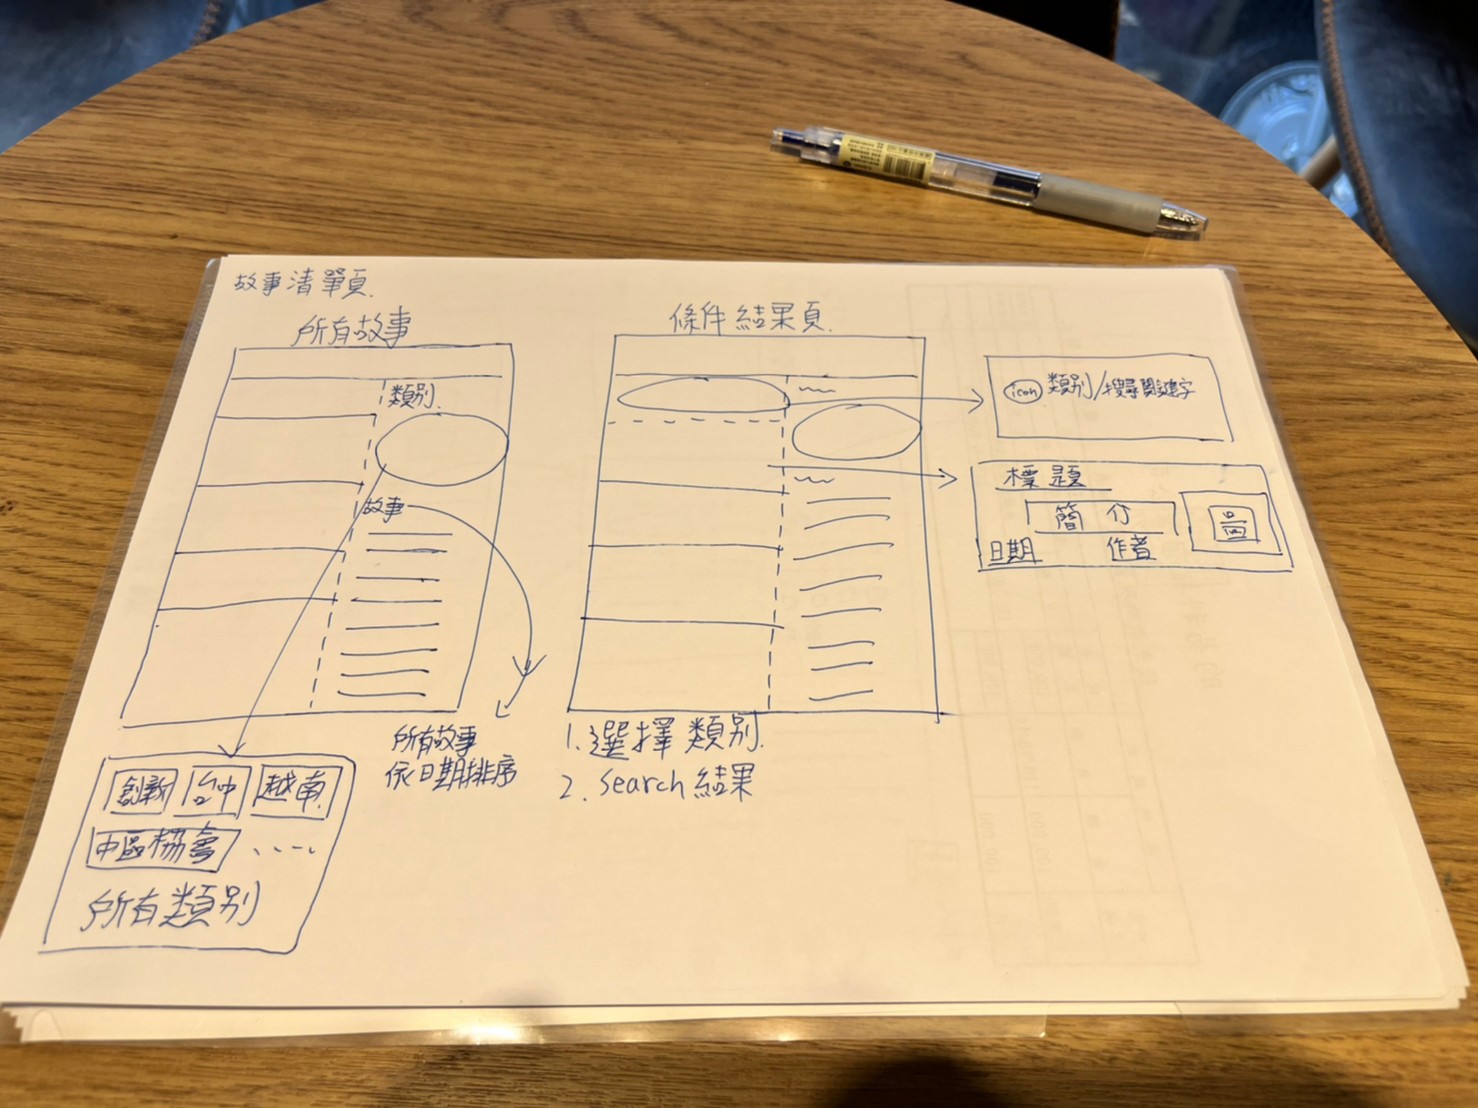 故事清單頁
所有故事
類別
故事
所有故事
依日期排序
創新 台中 越南
中區協會
所有類別
條件結果頁
1. 選擇類別
2. Search 結果
icon 類別/搜尋關鍵字
標題
簡介
圖
日期 作者